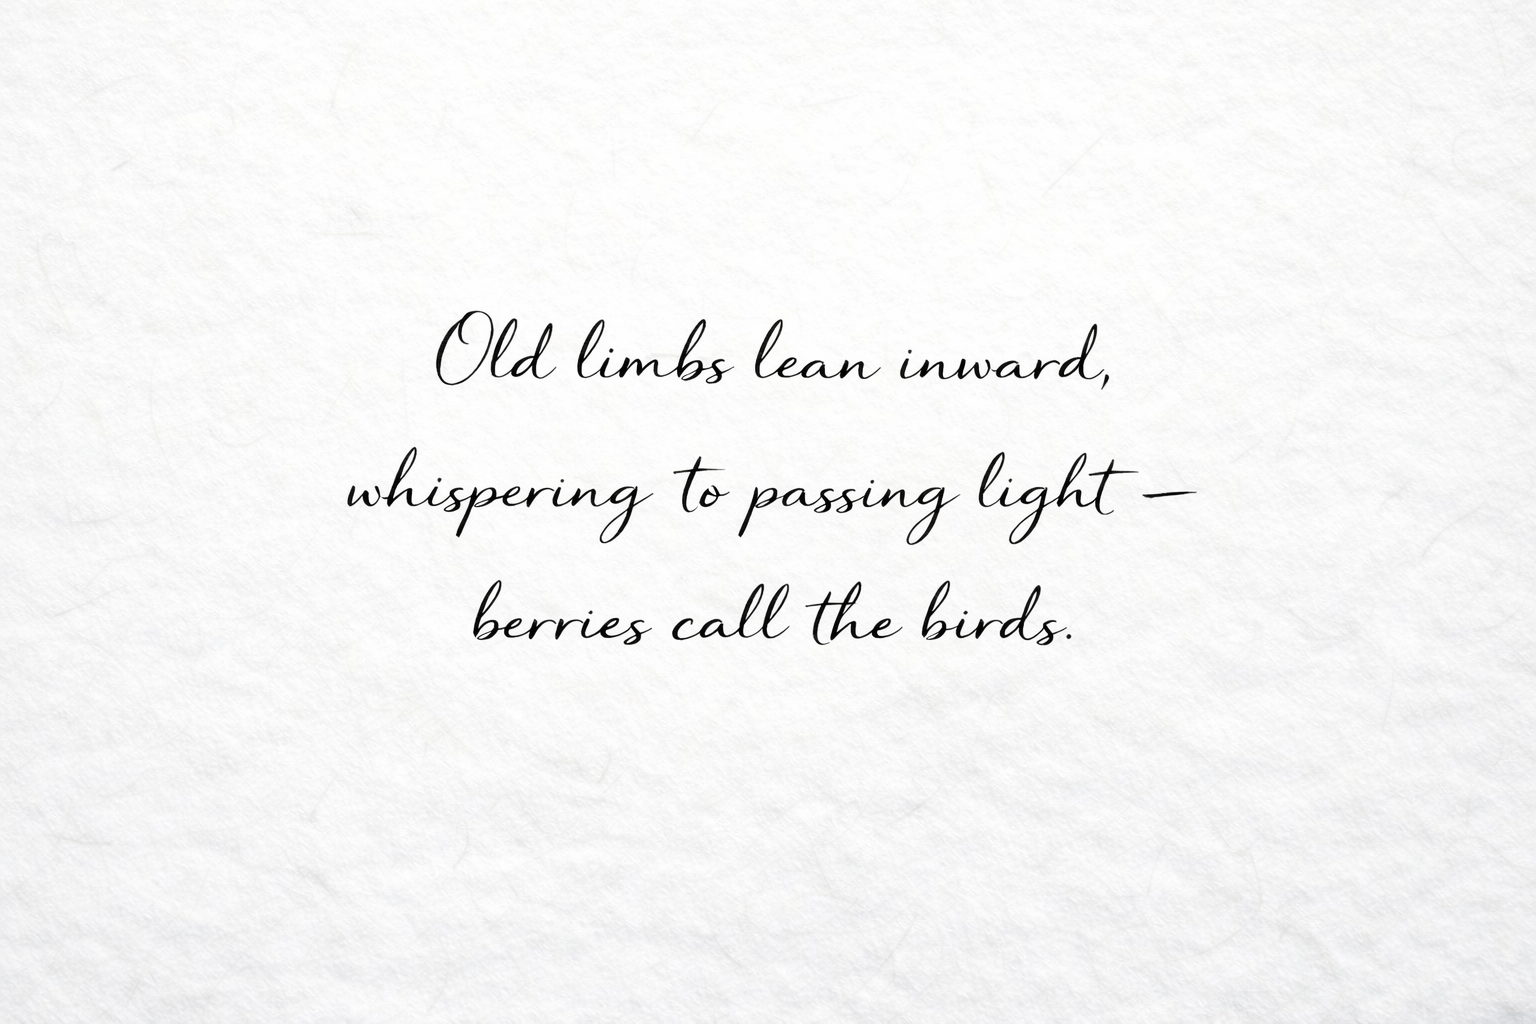 Old limbs lean inward,
whispering to passing light –
berries call the birds.